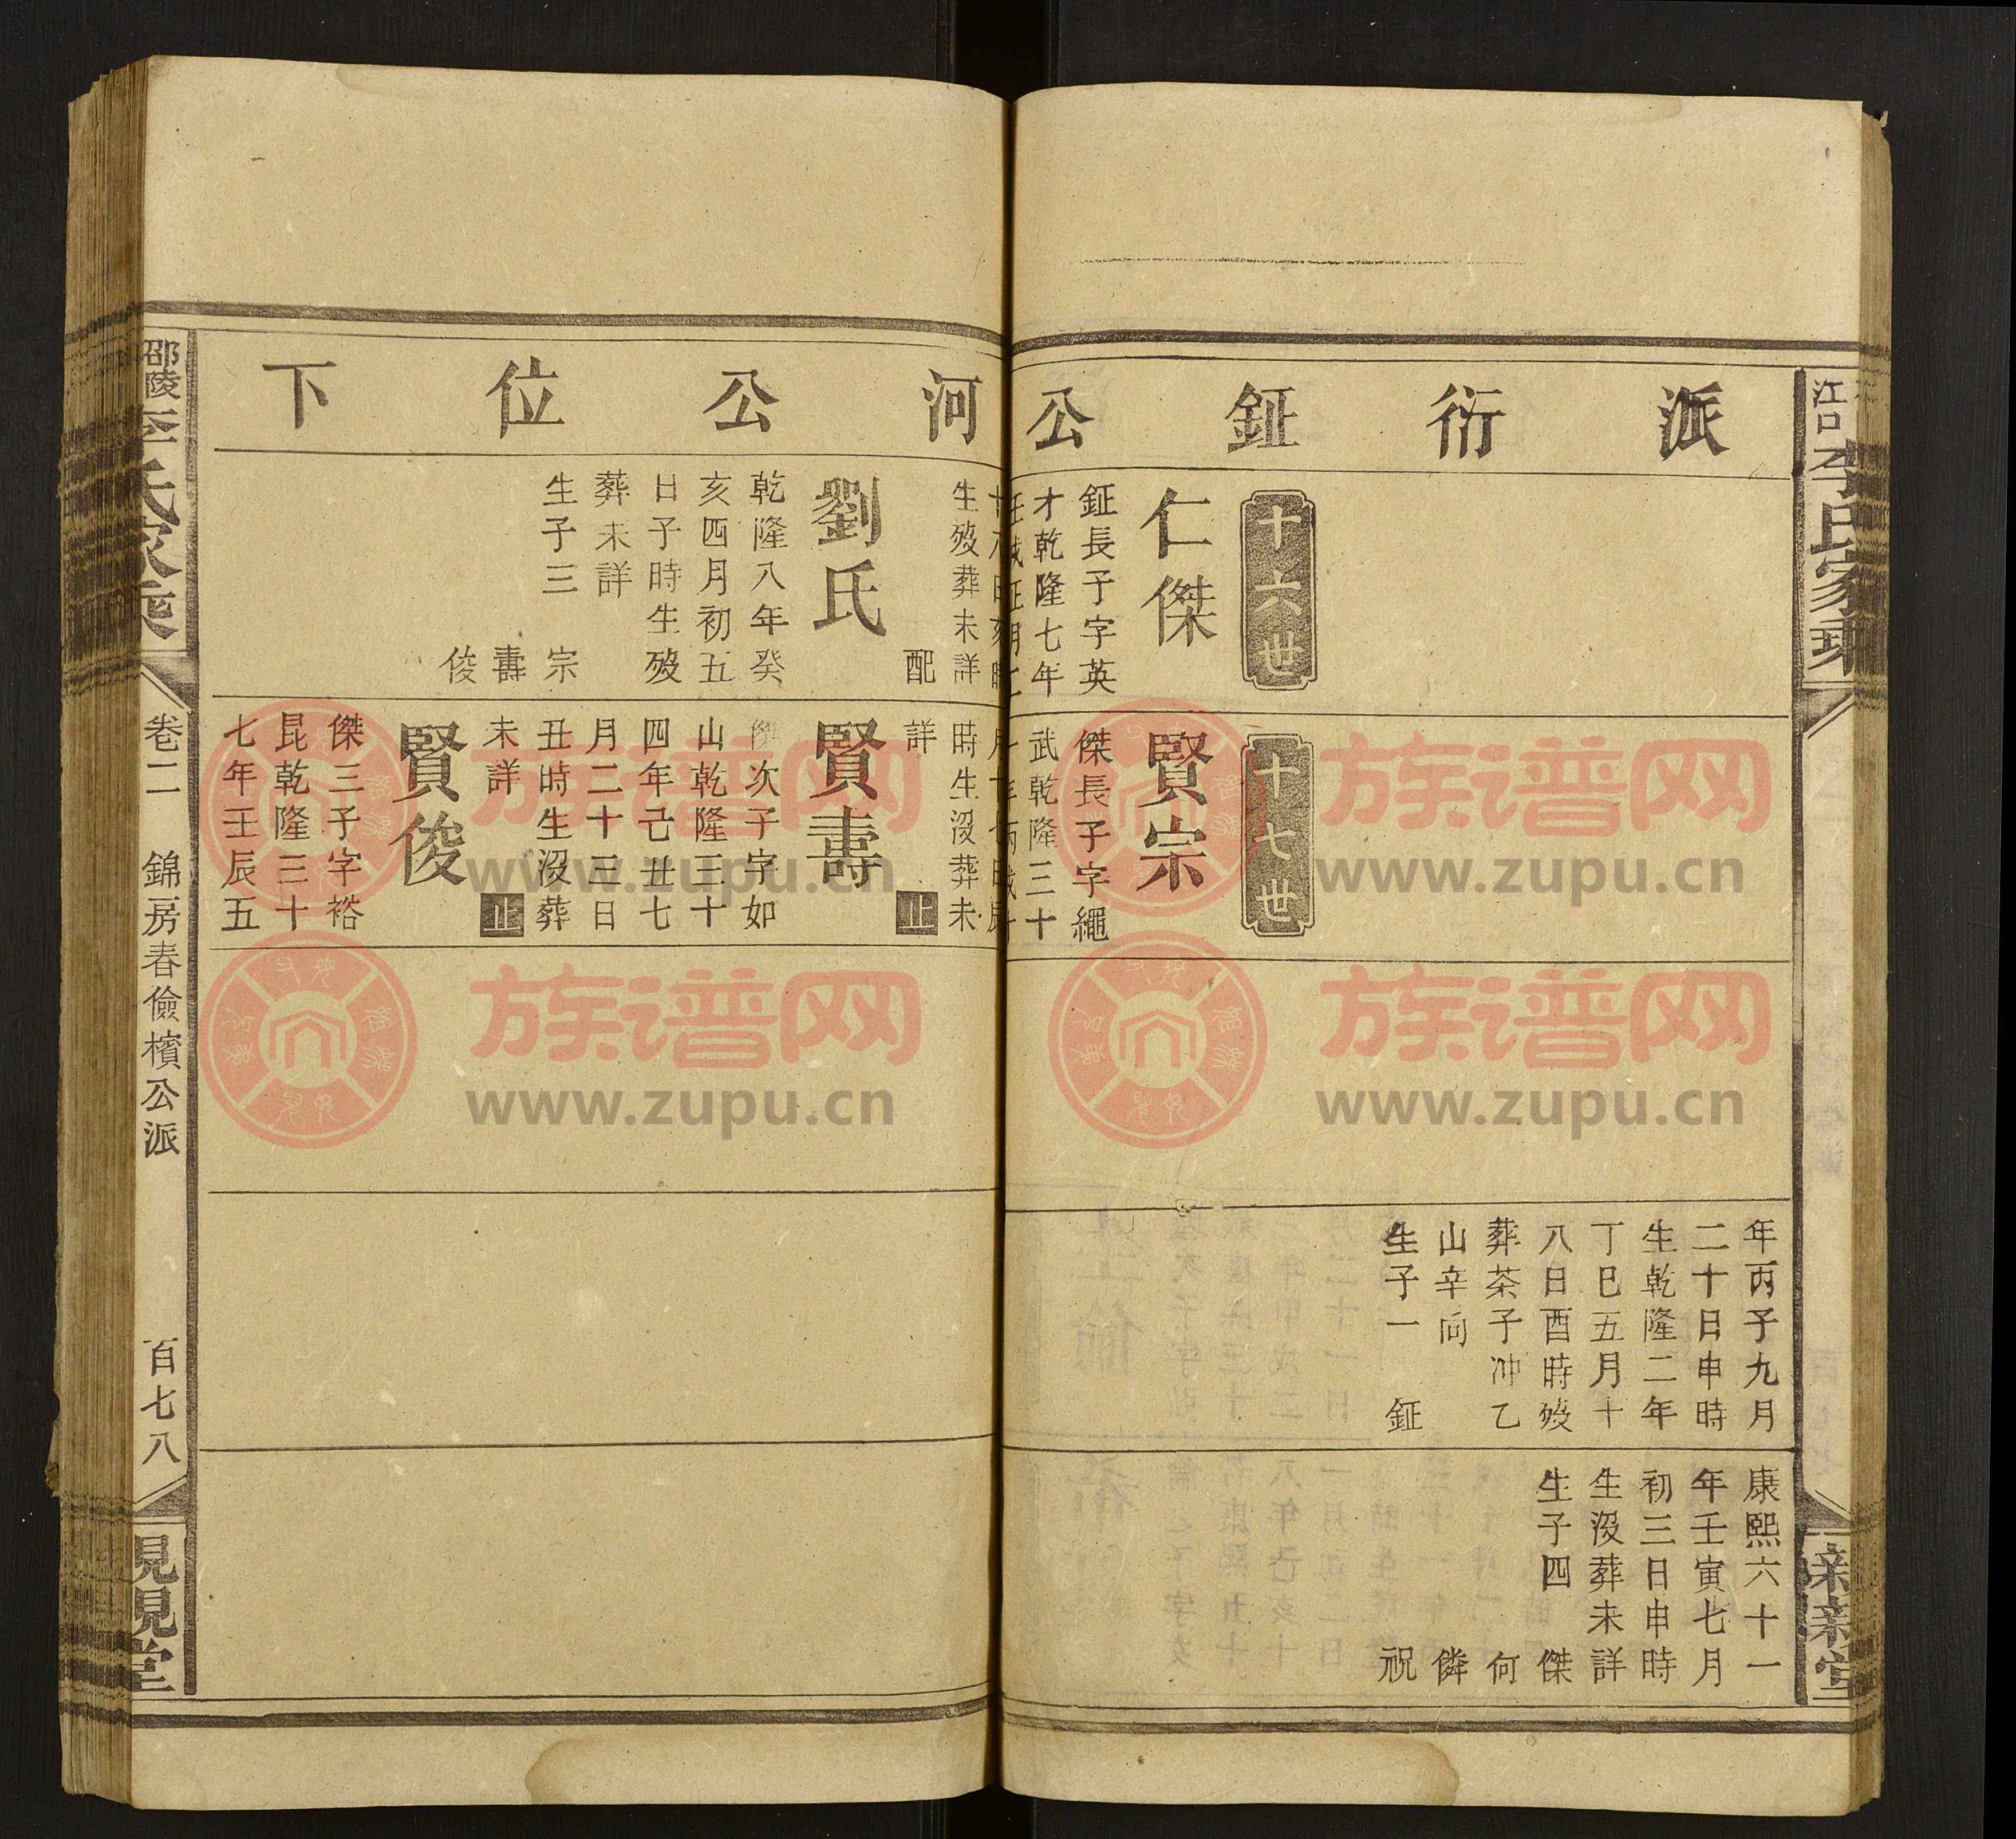 江口
李氏家乘
新新堂
派衍鉦公河公位下
十六世
仁傑
鉦長子字英
才乾隆七年
生歿葬未詳
配
劉氏
乾隆八年癸
亥四月初五
日子時生歿
葬未詳
生子三
宗
壽
俊
十七世
賢宗
傑長子字繩
武乾隆三十
時生沒葬未
詳
止
賢壽
傑次子字如
山乾隆三十
四年己丑七
月二十三日
丑時生沒葬
未詳
止
賢俊
傑三子字裕
昆乾隆三十
七年壬辰五
年丙子九月
二十日申時
生乾隆二年
丁巳五月十
八日酉時歿
葬茶子冲乙
山辛向
生子一 鉦
康熙六十一
年壬寅七月
初三日申時
生沒葬未詳
生子四 傑
何
憐
祝
邵陵
李氏家乘
卷二 錦房春儉檳公派 百七八
現現堂
族谱网
www.zupu.cn
族谱网
www.zupu.cn
族谱网
www.zupu.cn
族谱网
www.zupu.cn